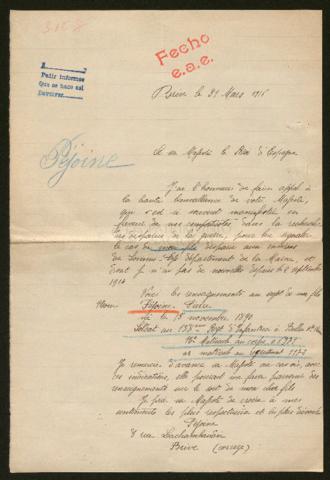 Fecho
e.a.e.
Pedir informes
Que se haga así
Brive le 31 Mars 1915
Péjoine
A sa Majesté le Roi d'Espagne
J'ai l'honneur de faire appel à
la haute bienveillance de votre Majesté,
qui s'est si souvent manifestée en
faveur de nos compatriotes dans la recherche
des disparus de la guerre, pour lui signaler
le cas de mon fils disparu aux environs
de département de la Marne, et
dont je n'ai pas de nouvelles depuis le 8 septembre
1914
Voici les renseignements au sujet de mon fils
Péjoine
né le 15 novembre 1890
Soldat au Rég d'Infanterie
Nº Matricule au corps
et matricule au recrutement
Je remercie d'avance sa Majesté au cas où, avec
ces indications, elle pourrait me faire parvenir des
renseignements sur le sort de mon cher fils
Je prie sa Majesté de croire à mes
sentiments les plus respectueux et les plus dévoués
Péjoine
8 rue
Brive (Corrèze)